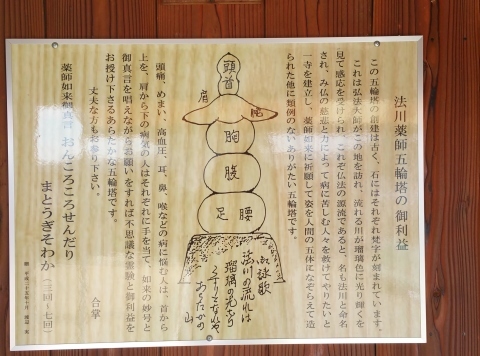 法川薬師五輪塔の御利益
この五輪塔の創建は古く、石にはそれぞれ梵字が刻まれています。
これは弘法大師がこの地を訪れ、流れる川が瑠璃色に光り輝くを
見て感応を受けられ、これぞ仏法の源流であると、名も法川と命名
され、み仏の慈悲と力によって病に苦しむ人々を救けてやりたいと
一寺を建立し、薬師如来に祈願して姿を人間の五体になぞらえて造
られた他に類例のないありがたい五輪塔です。
頭首
肩
胸
腹
腰
足
御詠歌
法川の流れは
瑠璃の光なり
山
頭痛、めまい、高血圧、耳、鼻、喉などの病に悩む人は、首から
上を、肩から下の病気の人はそれぞれに手を当て、如来の妙号と
御真言を唱えながらお願いをすれば不思議な霊験と御利益を
お授け下さるあらたかな五輪塔です。
丈夫な方もお参り下さい。
合掌
薬師如来御真言 おんころころせんだり
まとうぎそわか (三回~七回)